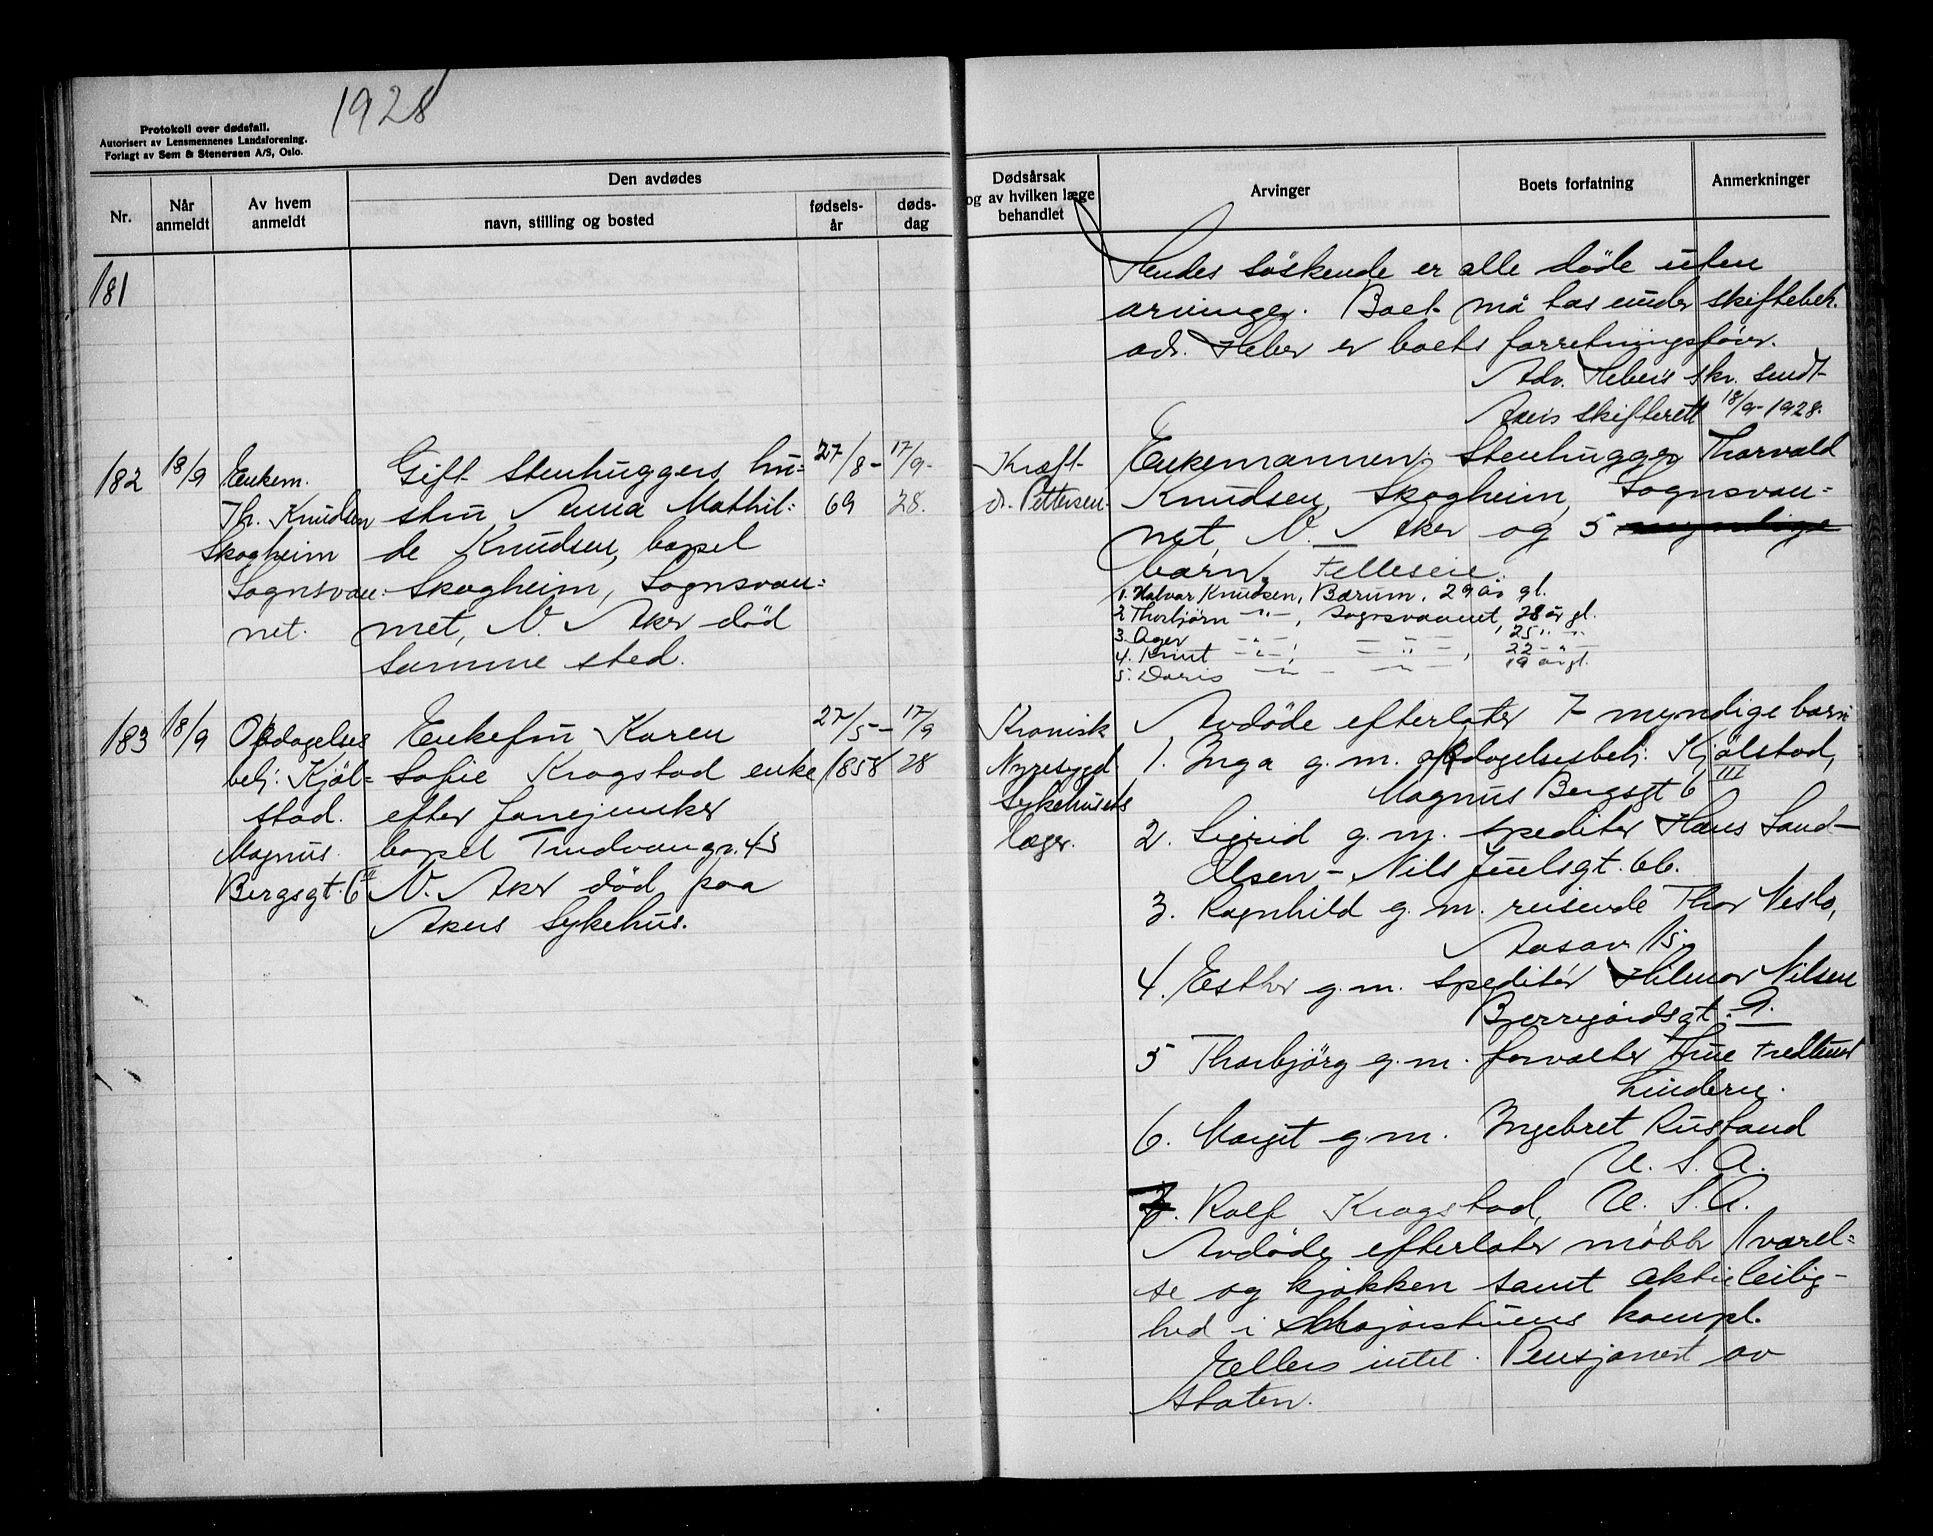 1928
Protokoll over dødsfall.
Autorisert av Lensmennenes Landsforening.
Forlagt av Sem & Stenersen A/S, Oslo.
Nr.
Når anmeldt
Av hvem anmeldt
Den avdødes
navn, stilling og bosted
fødsels-år
døds-dag
Dødsårsak og av hvilken læge behandlet
Arvinger
Boets forfatning
Anmerkninger
181
Hendes söskende er alle döde uten
arvinger. Boet må tas under skiftebeh.
adv. Heber er boets forretningsförer.
Adv. Hebers skr. sendt
Akers skifterett 18/9-1928.
182
18/9
Enkem.
Th. Knudsen
Skogheim
Sognsvan-
net.
Gift Stenhuggers hu=
stru Anna Mathil=
de Knudsen, bopel
Skogheim, Sognsvan=
net, V. Aker död
samme sted.
27/8-
69
17/9-
28.
Kræft
dr. Pettersen
Enkemannen, Stenhugger Thorvald
Knudsen, Skogheim, Sognsvan=
net, V. Aker og 5 myndige
barn, Felleseie.
1. Halvar Knudsen, Bærum, 29 år gl.
2. Thorbjörn -"-, Sognsvannet, 28 år gl.
3. Ager -"- -"-, 25 "-"-
4. Knut -"-, -"-, 22 -"-
5. Doris -"- -"- 19 år gl.
183
18/9
Opdagelses
betj: Kjöl-
stad.
Magnus
Bergsgt. 6 III
Enkefru Karen
Sofie Krogstad enke
efter
bopel Tindvangn. 45
V. Aker död paa
Akers Sykehus.
27/5-
1858
17/9
28
Kronisk
Nyresygd
Sykehusets
læger.
Avdöde efterlater 7 myndige barn
1. Inga g.m. opdagelsesbetj: Kjölstad,
Magnus Bergsgt 6 III
2. Sigrid g.m. speditör Hans Sand-
Olsen - Nils Juelsgt. 66.
3. Ragnhild g.m. reisende Thor Neslo,
Aasav. 15.
4. Esther g.m. speditör Hilmar Nilsen
Bjerregårdsgt. 9.
5 Thorbjörg g.m. forvalter Thue Fredlund
Lindern.
6. Margit g.m. Ingebret Rustand
U. S. A.
7. Rolf Krogstad, U. S. A.
Avdöde efterlater möbler 1 værel=
se og kjökken samt aktieleilig-
hed i Majorstuens kompl.
Ellers intet. Pensjonert av
Staten.